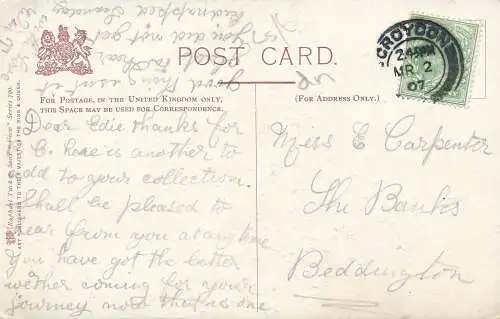 POST CARD.
FOR POSTAGE, IN THE UNITED KINGDOM ONLY,
THIS SPACE MAY BE USED FOR CORRESPONDENCE.
(FOR ADDRESS ONLY.)
CROYDON
MR 2
07
Dear Edie thanks for
C. here is another to
add to your collection.
Shall be pleased to
hear from you at any time
You have got the better
wether coming for your
journey now that is one
Miss E Carpenter
The Banks
Beddington
you did not get
Raphael Tuck & Sons
ART PUBLISHERS TO THEIR MAJESTIES THE KING & QUEEN.